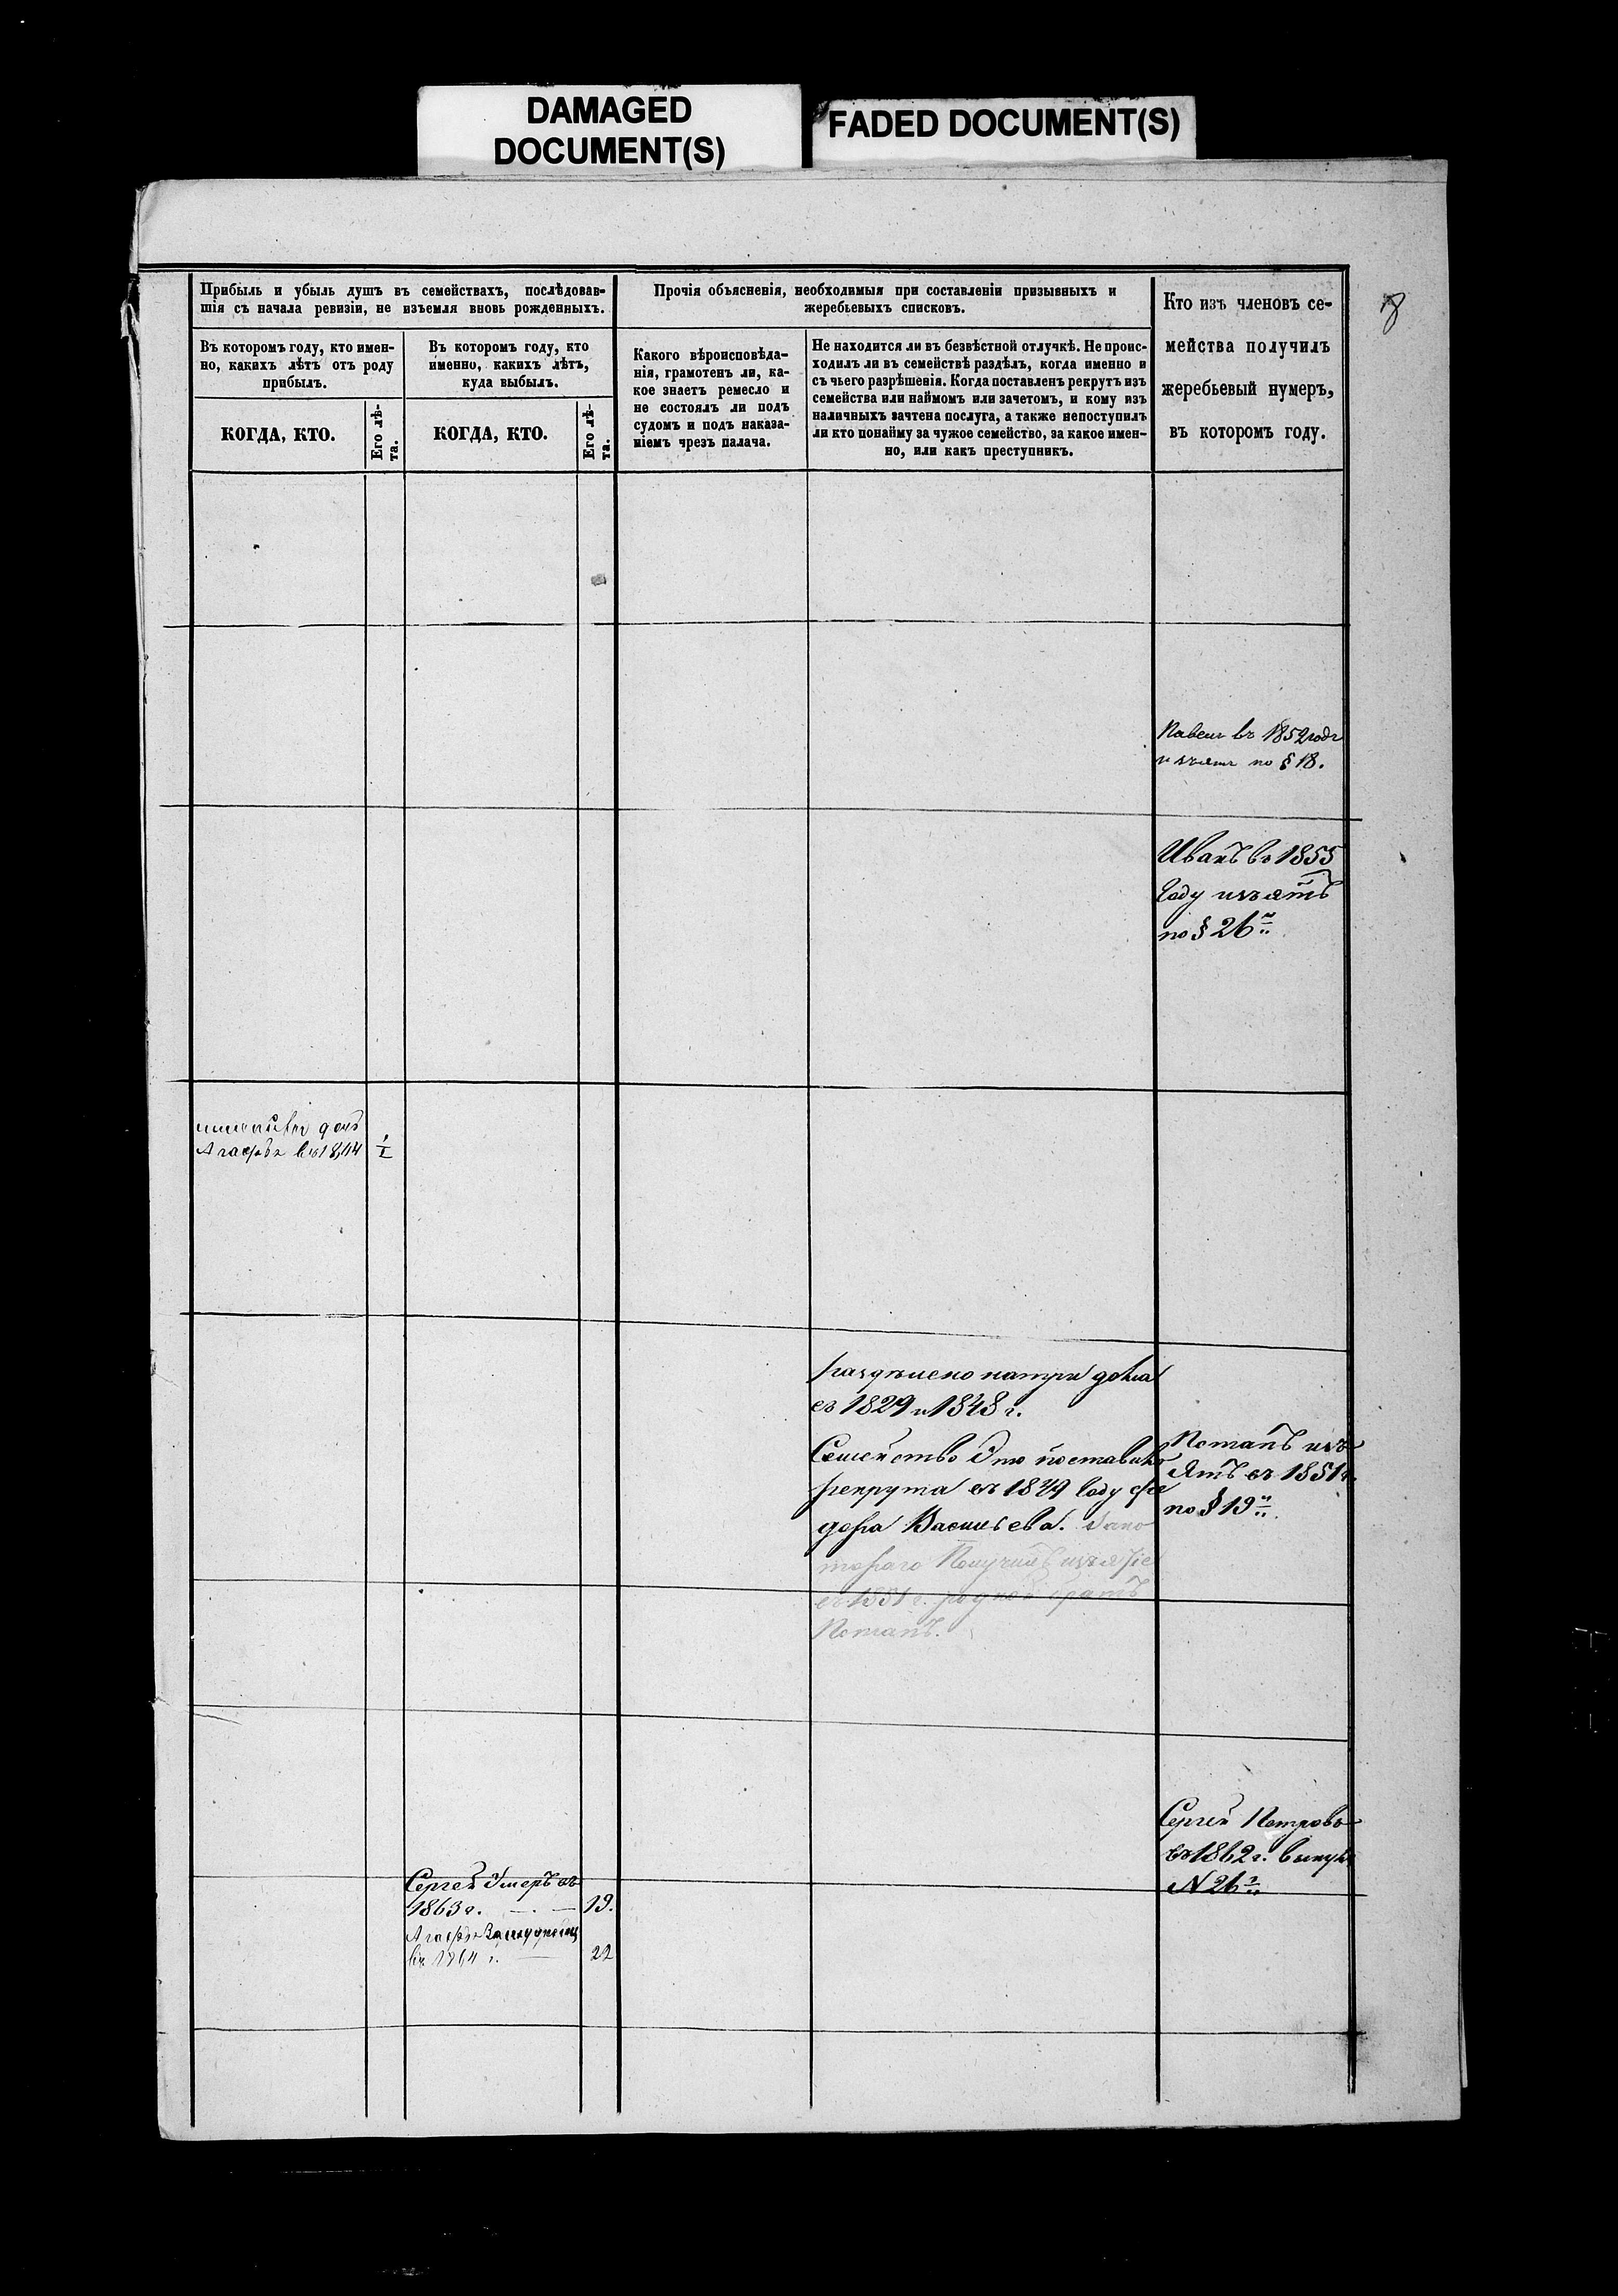 DAMAGED
DOCUMENT(S)
FADED DOCUMENT(S)
Прибыль и убыль душъ въ семействахъ, послѣдовав-
шія съ начала ревизіи, не изъемля вновь рожденныхъ.
Въ которомъ году, кто имен-
но, какихъ лѣтъ отъ роду
прибылъ.
Въ которомъ году, кто
именно, какихъ лѣтъ,
куда выбылъ.
КОГДА, КТО.
Его лѣ-
та.
КОГДА, КТО.
Его лѣ-
та.
Прочія объясненія, необходимыя при составленіи призывныхъ и
жеребьевыхъ списковъ.
Какого вѣроисповѣда-
нія, грамотенъ ли, ка-
кое знаетъ ремесло и
не состоялъ ли подъ
судомъ и подъ наказа-
ніемъ чрезъ палача.
Не находится ли въ безвѣстной отлучкѣ. Не проис-
ходилъ ли въ семействѣ раздѣлъ, когда именно и
съ чьего разрѣшенія. Когда поставленъ рекрутъ изъ
семейства или наймомъ или зачетомъ, и кому изъ
наличныхъ зачтена послуга, а также непоступилъ
ли кто понайму за чужое семейство, за какое имен-
но, или какъ преступникъ.
Кто изъ членовъ се-
мейства получилъ
жеребьевый нумеръ,
въ которомъ году.
Павелъ въ 1852 годѣ
изъятъ по § 18.
Иванъ въ 1855
году изъятъ
по § 26
раздѣлено натри дома
въ 1829 и 1848 г.
Семейство это поставило
рекрута въ 1849 году Фе
дора Васильева. Зако
тораго Получилъ изъятіе
въ 1851 г. родной братъ
Потапъ.
Потапъ изъ
ятъ въ 1851 г.
по § 19
Сергей Петровъ
въ 1862 г. вынулъ
N 26
Сергей Умеръ въ
1863 г. 19.
22